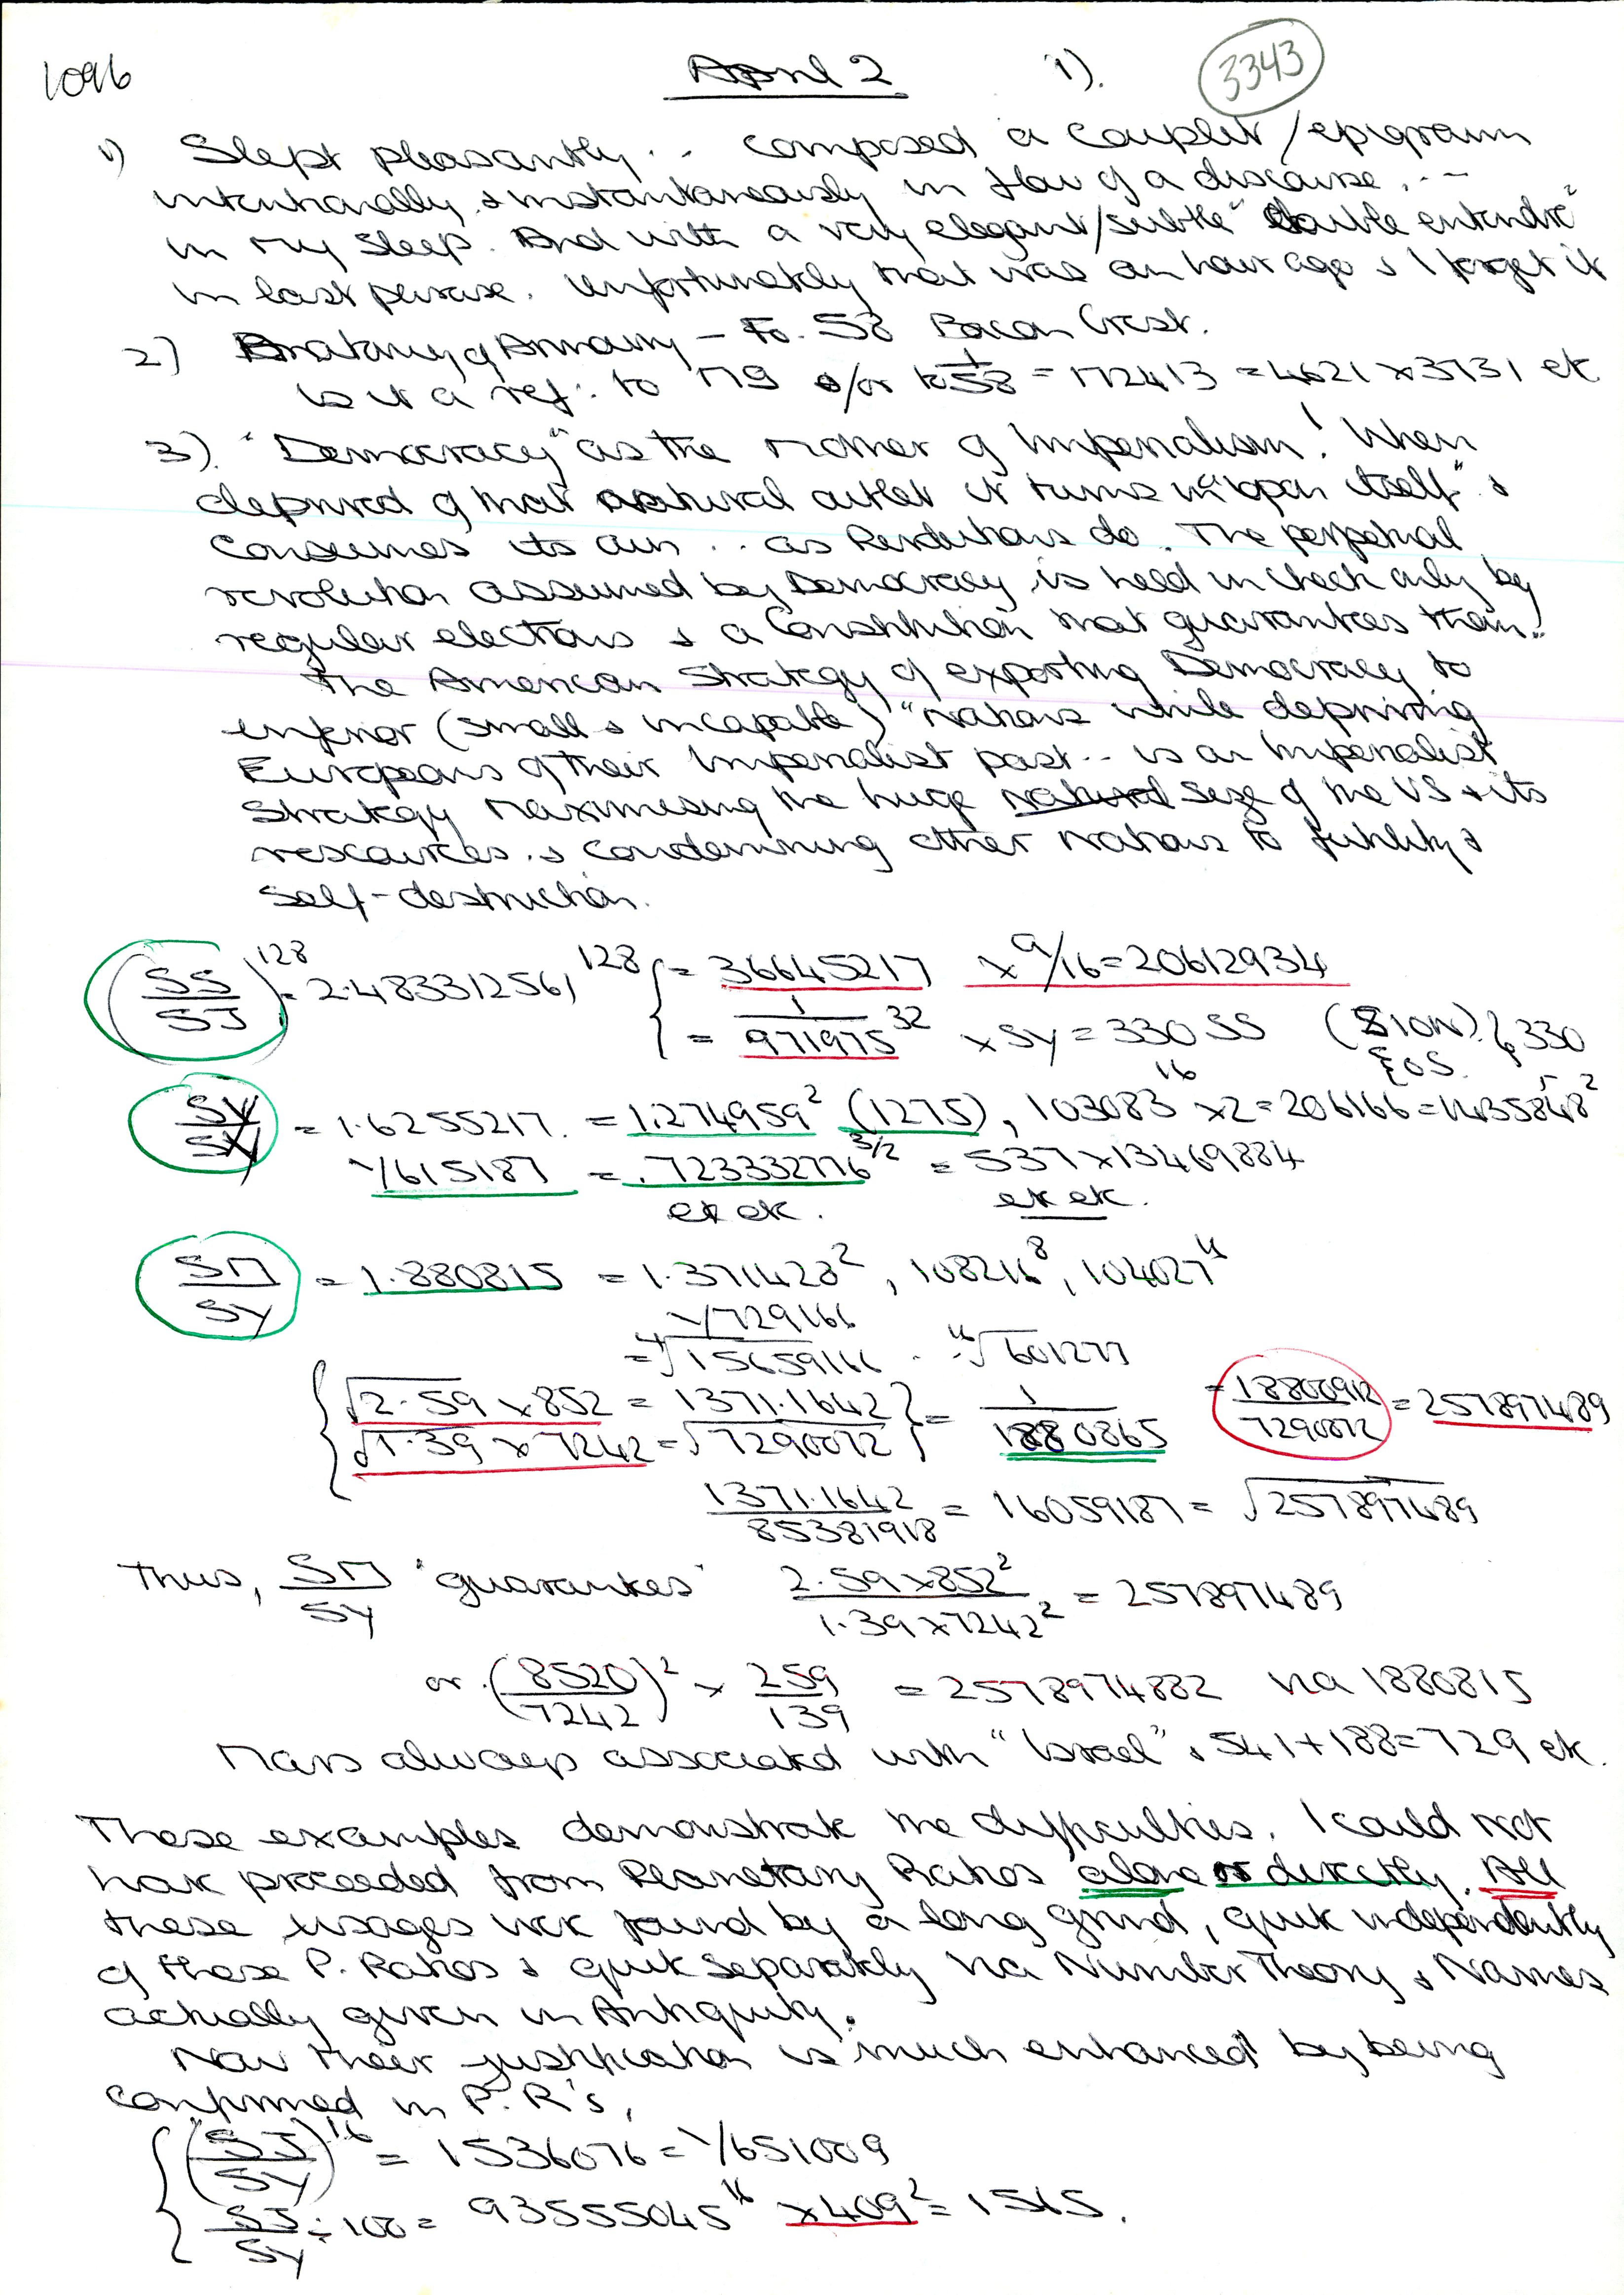 1096
April 2 1). 3343
1) Slept pleasantly .. composed a couplet / epigram
intentionally & instantaneously in flow of a discourse. --
in my sleep. And with a very elegant/subtle "double entendre"
in last phrase. Unfortunately that was an hour ago & I forget it
2) Anatomy of Armoury - Fo. 58 Bacon Crest.
Is it a ref: to 179 &/or to 1/58 = 172413 = 4621 x 3731 etc
3) "Democracy" as the mother of Imperialism! When
deprived of that natural outlet it turns in "upon itself" &
consumes its own .. as Revolutions do. The perpetual
revolution assumed by Democracy is held in check only by
regular elections & a Constitution that guarantees them!
The American Strategy of exporting Democracy to
inferior (small & incapable) "Nations while depriving
Europeans of their Imperialist past .. is an Imperialist
Strategy maximising the huge natural size of the US & its
resources & condemning other nations to futility &
self-destruction.
(SS/SJ)^128 = 2.483312561^128 { = 36645217 x 9/16 = 20612934
= 1/971975^32 x SY = 330 SS (SION) & 330
ΣOS.
SV/SY = 1.6255217. = 1.274959^2 (1275), 103083^16 x 2 = 206166 = 1435848^2
1/615187 = .723332776^3/2 = 537 x 13469884
etc etc. etc etc.
SM/SY = 1.880815 = 1.371428^2, 108216^8, 104027^16
1/729166
= 4√15659166 . 16√601277
{ √2.59 x 852 = 1371.1642 } = 1/1880865 = 18800912/7290072 = 257897489
√1.39 x 7242 = √7290072
1371.1642/85381918 = 16059187 = √257897489
Thus, SM/SY 'guarantees' 2.59 x 852^2/1.39 x 7242^2 = 257897489
or (8520/7242)^2 x 259/139 = 2578974882 via 1880815
Mars always associated with "Israel" & 541 + 188 = 729 etc.
These examples demonstrate the difficulties. I could not
have proceeded from Planetary Ratios alone or directly. All
these usages were found by a long grind, quite independently
of these P. Ratios & quite separately via Number Theory & Names
actually given in Antiquity.
Now their justification is much enhanced by being
confirmed in P. R's,
{ (SJ/SY)^16 = 1536076 = 1/651009
SJ/SY ÷ 100 = 93555045^16 x 409^2 = 1565.